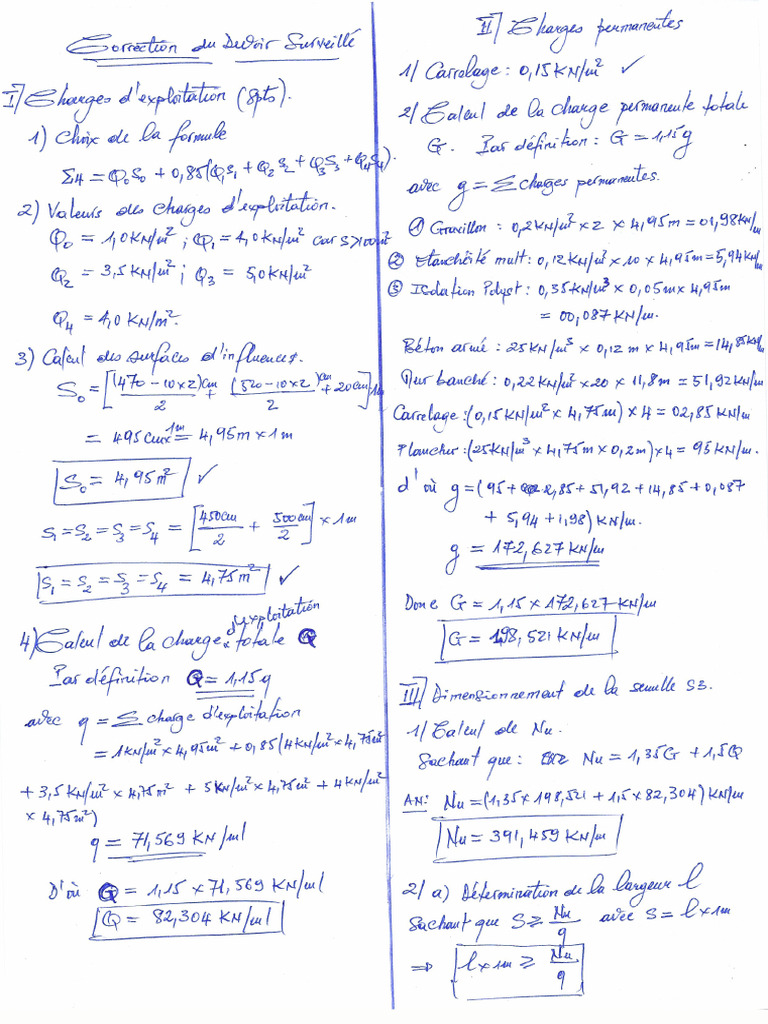 Correction du Devoir Surveillé
I/ Charges d'exploitation (8pts).
1) Choix de la formule
Σ4 = Q₀S₀ + 0,85(Q₁S₁ + Q₂S₂ + Q₃S₃ + Q₄S₄).
2) Valeurs des charges d'exploitation.
Q₀ = 1,0KN/m² ; Q₁ = 4,0KN/m² car S>100m²
Q₂ = 3,5KN/m² ; Q₃ = 5,0KN/m²
Q₄ = 4,0 KN/m².
3) Calcul des surfaces d'influences.
S₀ = [(470-10x2)cm/2 + (520-10x2)cm/2 + 20cm] 1m
= 495cmx1m = 4,95m x 1m
S₀ = 4,95m² ✓
S₁ = S₂ = S₃ = S₄ = [450cm/2 + 500cm/2] x 1m
S₁ = S₂ = S₃ = S₄ = 4,75m² ✓
4) Calcul de la charge d'exploitation totale Q
Par définition Q = 1,15q
avec q = Σ charge d'exploitation
= 1KN/m² x 4,95m² + 0,85(4KN/m² x 4,75m²
+ 3,5KN/m² x 4,75m² + 5KN/m² x 4,75m² + 4KN/m²
x 4,75m²)
q = 71,569 KN/ml
D'où Q = 1,15 x 71,569 KN/ml
Q = 82,304 KN/ml
II/ Charges permanentes
1/ Carrelage : 0,15KN/m² ✓
2/ Calcul de la charge permanente totale
G. Par définition : G = 1,15g
avec g = Σ charges permanentes.
① Gravillon : 0,2KN/m² x 2 x 4,95m = 01,98KN/m
② Etanchéité mult : 0,12KN/m² x 10 x 4,95m = 5,94KN/m
③ Isolation Polyst : 0,35KN/m³ x 0,05m x 4,95m
= 00,087 KN/m.
Béton armé : 25KN/m³ x 0,12m x 4,95m = 14,85KN/m
Mur banché : 0,22KN/m² x 20 x 11,8m = 51,92KN/m
Carrelage : (0,15KN/m² x 4,75m) x 4 = 02,85 KN/m
Plancher : (25KN/m³ x 4,75m x 0,2m) x 4 = 95KN/m.
d'où g = (95 + 2,85 + 51,92 + 14,85 + 0,087
+ 5,94 + 1,98) KN/m.
g = 172,627KN/m
Donc G = 1,15 x 172,627KN/m
G = 198,521 KN/m
III/ Dimensionnement de la semelle S3.
1/ Calcul de Nu.
Sachant que : Nu = 1,35G + 1,5Q
AN : Nu = (1,35 x 198,521 + 1,5 x 82,304) KN/m
Nu = 391,459 KN/m
2/ a) Détermination de la largeur l
Sachant que S ≥ Nu/q avec S = l x 1m
⇒ l x 1m ≥ Nu/q